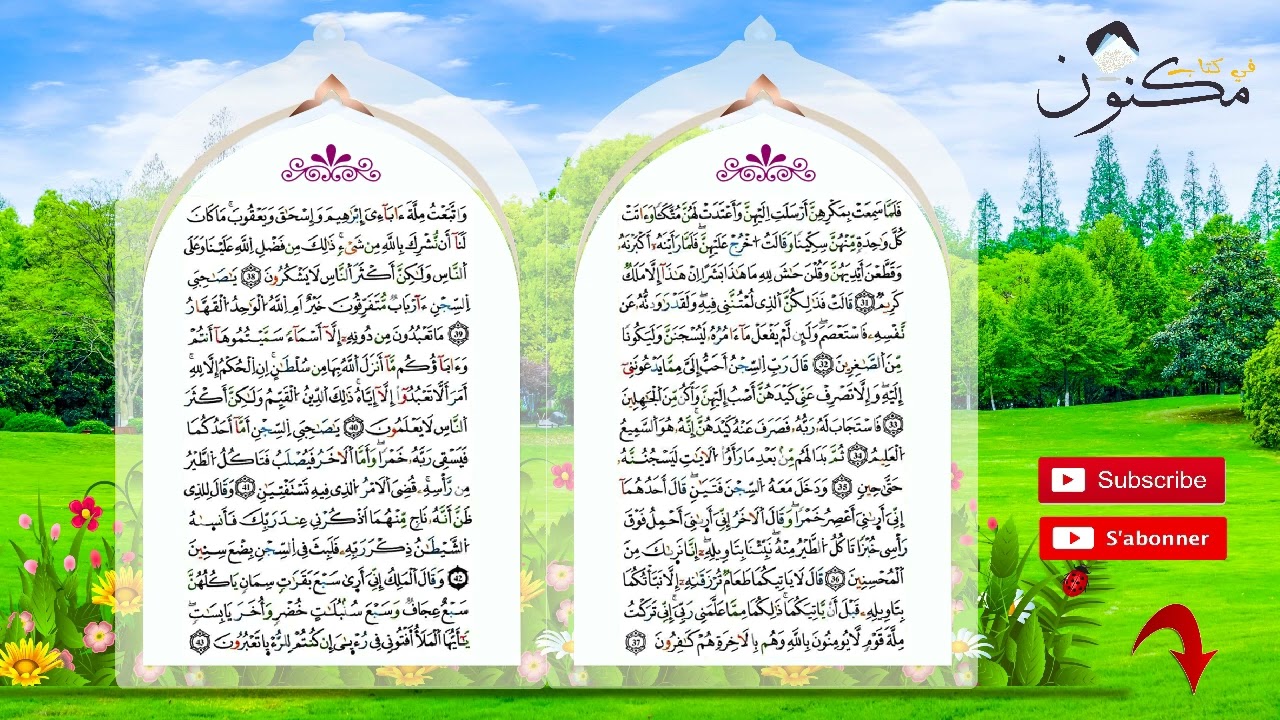 في كتاب
مكنون
فَلَمَّا سَمِعَتْ بِمَكْرِهِنَّ أَرْسَلَتِ اِلَيْهِنَّ وَأَعْتَدَتْ لَهُنَّ مُتَّكَـٔاً وَءَاتَتْ
كُلَّ وَٰحِدَةٖ مِّنْهُنَّ سِكِّيناً وَقَالَتُ اُخْرُجْ عَلَيْهِنَّۖ فَلَمَّا رَأَيْنَهُۥٓ أَكْبَرْنَهُۥ
وَقَطَّعْنَ أَيْدِيَهُنَّ وَقُلْنَ حَٰشَ لِلهِ مَا هَٰذَا بَشَراً اِنْ هَٰذَآ إِلَّا مَلَكٞ
كَرِيمٞ 31 قَالَتْ فَذَٰلِكُنَّ اَلذِے لُمْتُنَّنِے فِيهِۖ وَلَقَدْ رَٰوَدتُّهُۥ عَن
نَّفْسِهِۦ فَاسْتَعْصَمَۖ وَلَئِن لَّمْ يَفْعَلْ مَآ ءَامُرُهُۥ لَيُسْجَنَنَّ وَلَيَكُوناً
مِّنَ اَلصَّٰغِرِينَ 32 قَالَ رَبِّ اِلسِّجْنُ أَحَبُّ إِلَيَّ مِمَّا يَدْعُونَنِےٓ
إِلَيْهِۖ وَإِلَّا تَصْرِفْ عَنِّے كَيْدَهُنَّ أَصْبُ إِلَيْهِنَّ وَأَكُن مِّنَ اَلْجَٰهِلِينَ
33 فَاسْتَجَابَ لَهُۥ رَبُّهُۥ فَصَرَفَ عَنْهُ كَيْدَهُنَّۖ إِنَّهُۥ هُوَ اَلسَّمِيعُ
اُلْعَلِيمُ 34 ثُمَّ بَدَا لَهُم مِّنۢ بَعْدِ مَا رَأَوُاْ اُلْأٓيَٰتِ لَيَسْجُنُنَّهُۥ
حَتَّىٰ حِينٖ 35 وَدَخَلَ مَعَهُ اُلسِّجْنَ فَتَيَٰنِۖ قَالَ أَحَدُهُمَآ
إِنِّيَ أَرَىٰنِيَ أَعْصِرُ خَمْراً وَقَالَ اَلْأٓخَرُ إِنِّيَ أَرَىٰنِيَ أَحْمِلُ فَوْقَ
رَأْسِے خُبْزاً تَأْكُلُ اُلطَّيْرُ مِنْهُۖ نَبِّئْنَا بِتَأْوِيلِهِۦٓ إِنَّا نَرَىٰكَ مِنَ
اَلْمُحْسِنِينَ 36 قَالَ لَا يَأْتِيكُمَا طَعَامٞ تُرْزَقَٰنِهِۦٓ إِلَّا نَبَّأْتُكُمَا
بِتَأْوِيلِهِۦ قَبْلَ أَنْ يَّأْتِيَكُمَاۖ ذَٰلِكُمَا مِمَّا عَلَّمَنِے رَبِّيَۖ إِنِّے تَرَكْتُ
مِلَّةَ قَوْمٖ لَّا يُؤْمِنُونَ بِاللَّهِ وَهُم بِالْأٓخِرَةِ هُمْ كَٰفِرُونَ 37
وَاتَّبَعْتُ مِلَّةَ ءَابَآءِےَ إِبْرَٰهِيمَ وَإِسْحَٰقَ وَيَعْقُوبَۖ مَا كَانَ
لَنَآ أَن نُّشْرِكَ بِاللَّهِ مِن شَےْءٖۖ ذَٰلِكَ مِن فَضْلِ اِللَّهِ عَلَيْنَا وَعَلَى
اَلنَّاسِ وَلَٰكِنَّ أَكْثَرَ اَلنَّاسِ لَا يَشْكُرُونَ 38 يَٰصَٰحِبَيِ
اِلسِّجْنِ ءَآرْبَابٞ مُّتَفَرِّقُونَ خَيْرٌ اَمِ اِللَّهُ اُلْوَٰحِدُ اُلْقَهَّارُ
39 مَا تَعْبُدُونَ مِن دُونِهِۦٓ إِلَّآ أَسْمَآءٗ سَمَّيْتُمُوهَآ أَنتُمْ
وَءَابَآؤُكُم مَّآ أَنزَلَ اَللَّهُ بِهَا مِن سُلْطَٰنٍۖ اِنِ اِلْحُكْمُ إِلَّا لِلهِ
أَمَرَ أَلَّا تَعْبُدُوٓاْ إِلَّآ إِيَّاهُۖ ذَٰلِكَ اَلدِّينُ اُلْقَيِّمُ وَلَٰكِنَّ أَكْثَرَ
اَلنَّاسِ لَا يَعْلَمُونَ 40 يَٰصَٰحِبَيِ اِلسِّجْنِ أَمَّآ أَحَدُكُمَا
فَيَسْقِے رَبَّهُۥ خَمْراً وَأَمَّا اَلْأٓخَرُ فَيُصْلَبُ فَتَأْكُلُ اُلطَّيْرُ
مِن رَّأْسِهِۦۖ قُضِيَ اَلْأَمْرُ اُلذِے فِيهِ تَسْتَفْتِيَٰنِ 41 وَقَالَ لِلذِے
ظَنَّ أَنَّهُۥ نَاجٖ مِّنْهُمَا اَذْكُرْنِے عِندَ رَبِّكَ فَأَنسَىٰهُ
اُلشَّيْطَٰنُ ذِكْرَ رَبِّهِۦ فَلَبِثَ فِے اِلسِّجْنِ بِضْعَ سِنِينَ
42 وَقَالَ اَلْمَلِكُ إِنِّيَ أَرَىٰ سَبْعَ بَقَرَٰتٖ سِمَانٖ يَأْكُلُهُنَّ
سَبْعٌ عِجَافٞ وَسَبْعَ سُنۢبُلَٰتٍ خُضْرٖ وَأُخَرَ يَابِسَٰتٖۖ
يَٰٓأَيُّهَا اَلْمَلَأُ اَفْتُونِے فِے رُءْيَٰيَ إِن كُنتُمْ لِلرُّءْيَا تَعْبُرُونَ 43
Subscribe
S'abonner